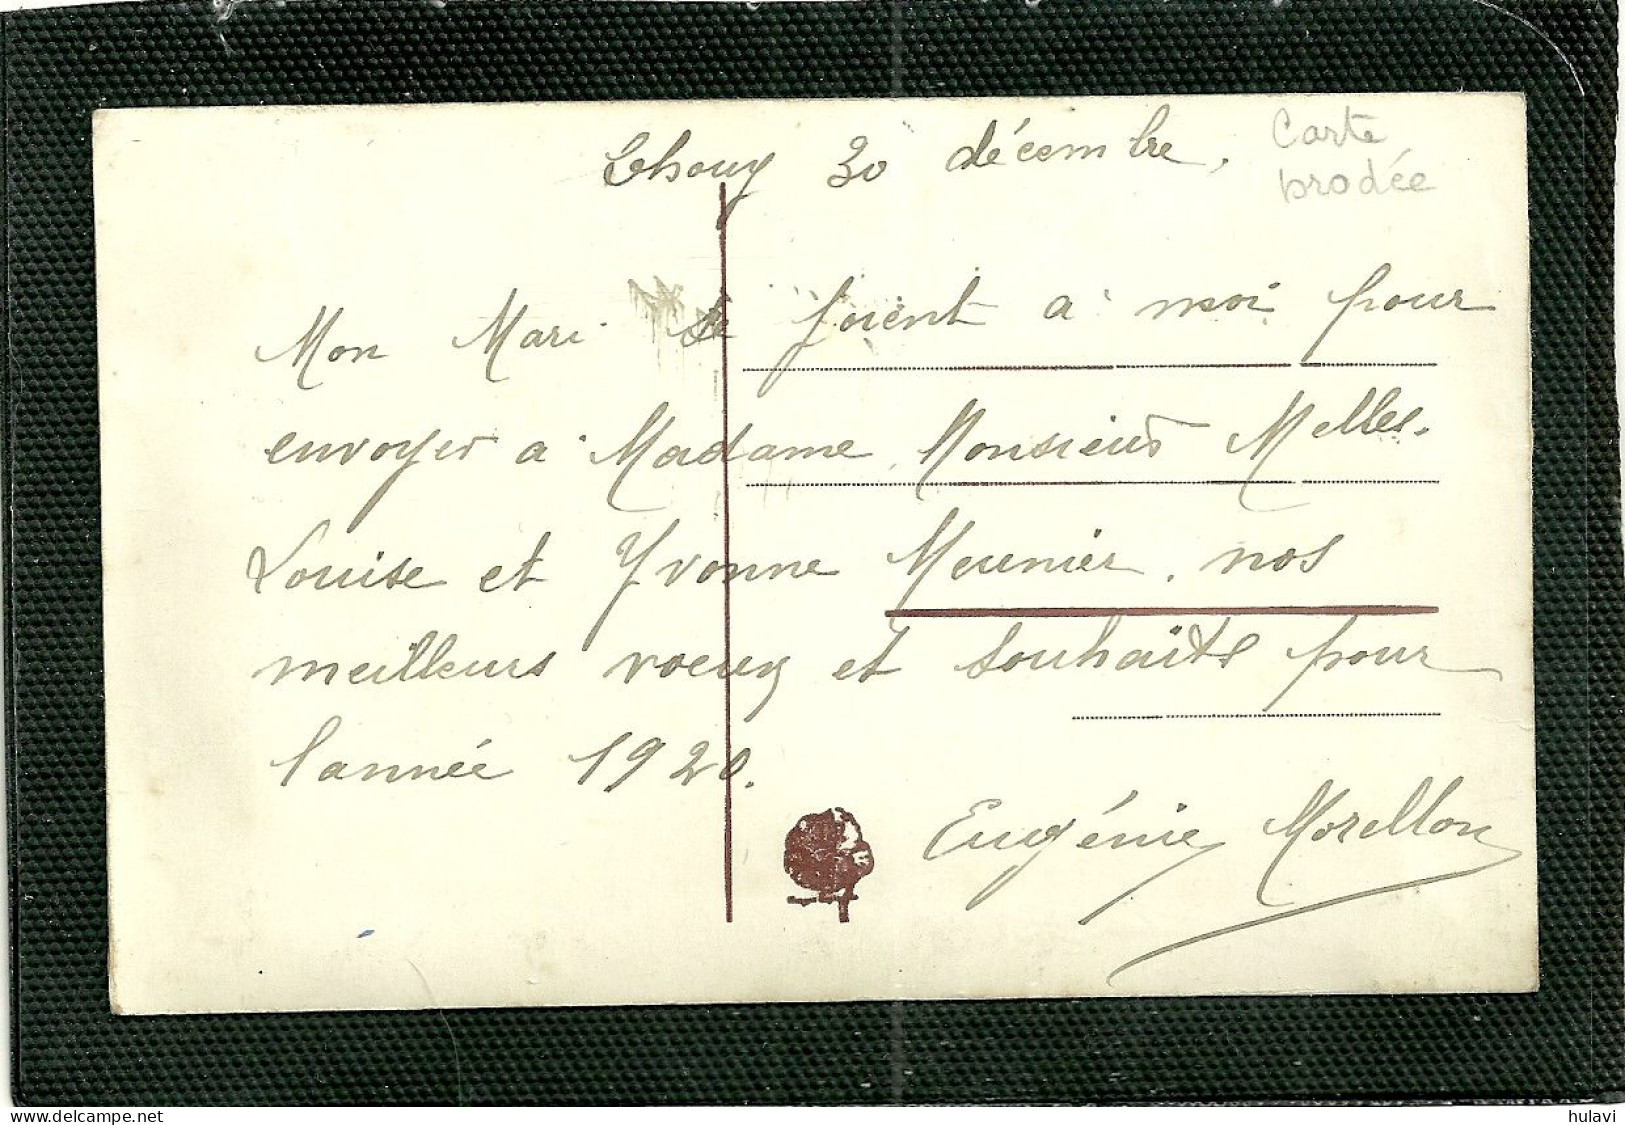 Chouy 30 décembre.
Carte
brodée
Mon Mari se joient a moi pour
envoyer a Madame, Monsieur Melles.
Louise et Yvonne Meunier. nos
meilleurs voeux et souhaits pour
lannée 1920.
Eugénie Morellon
delcampe.net
hulavi